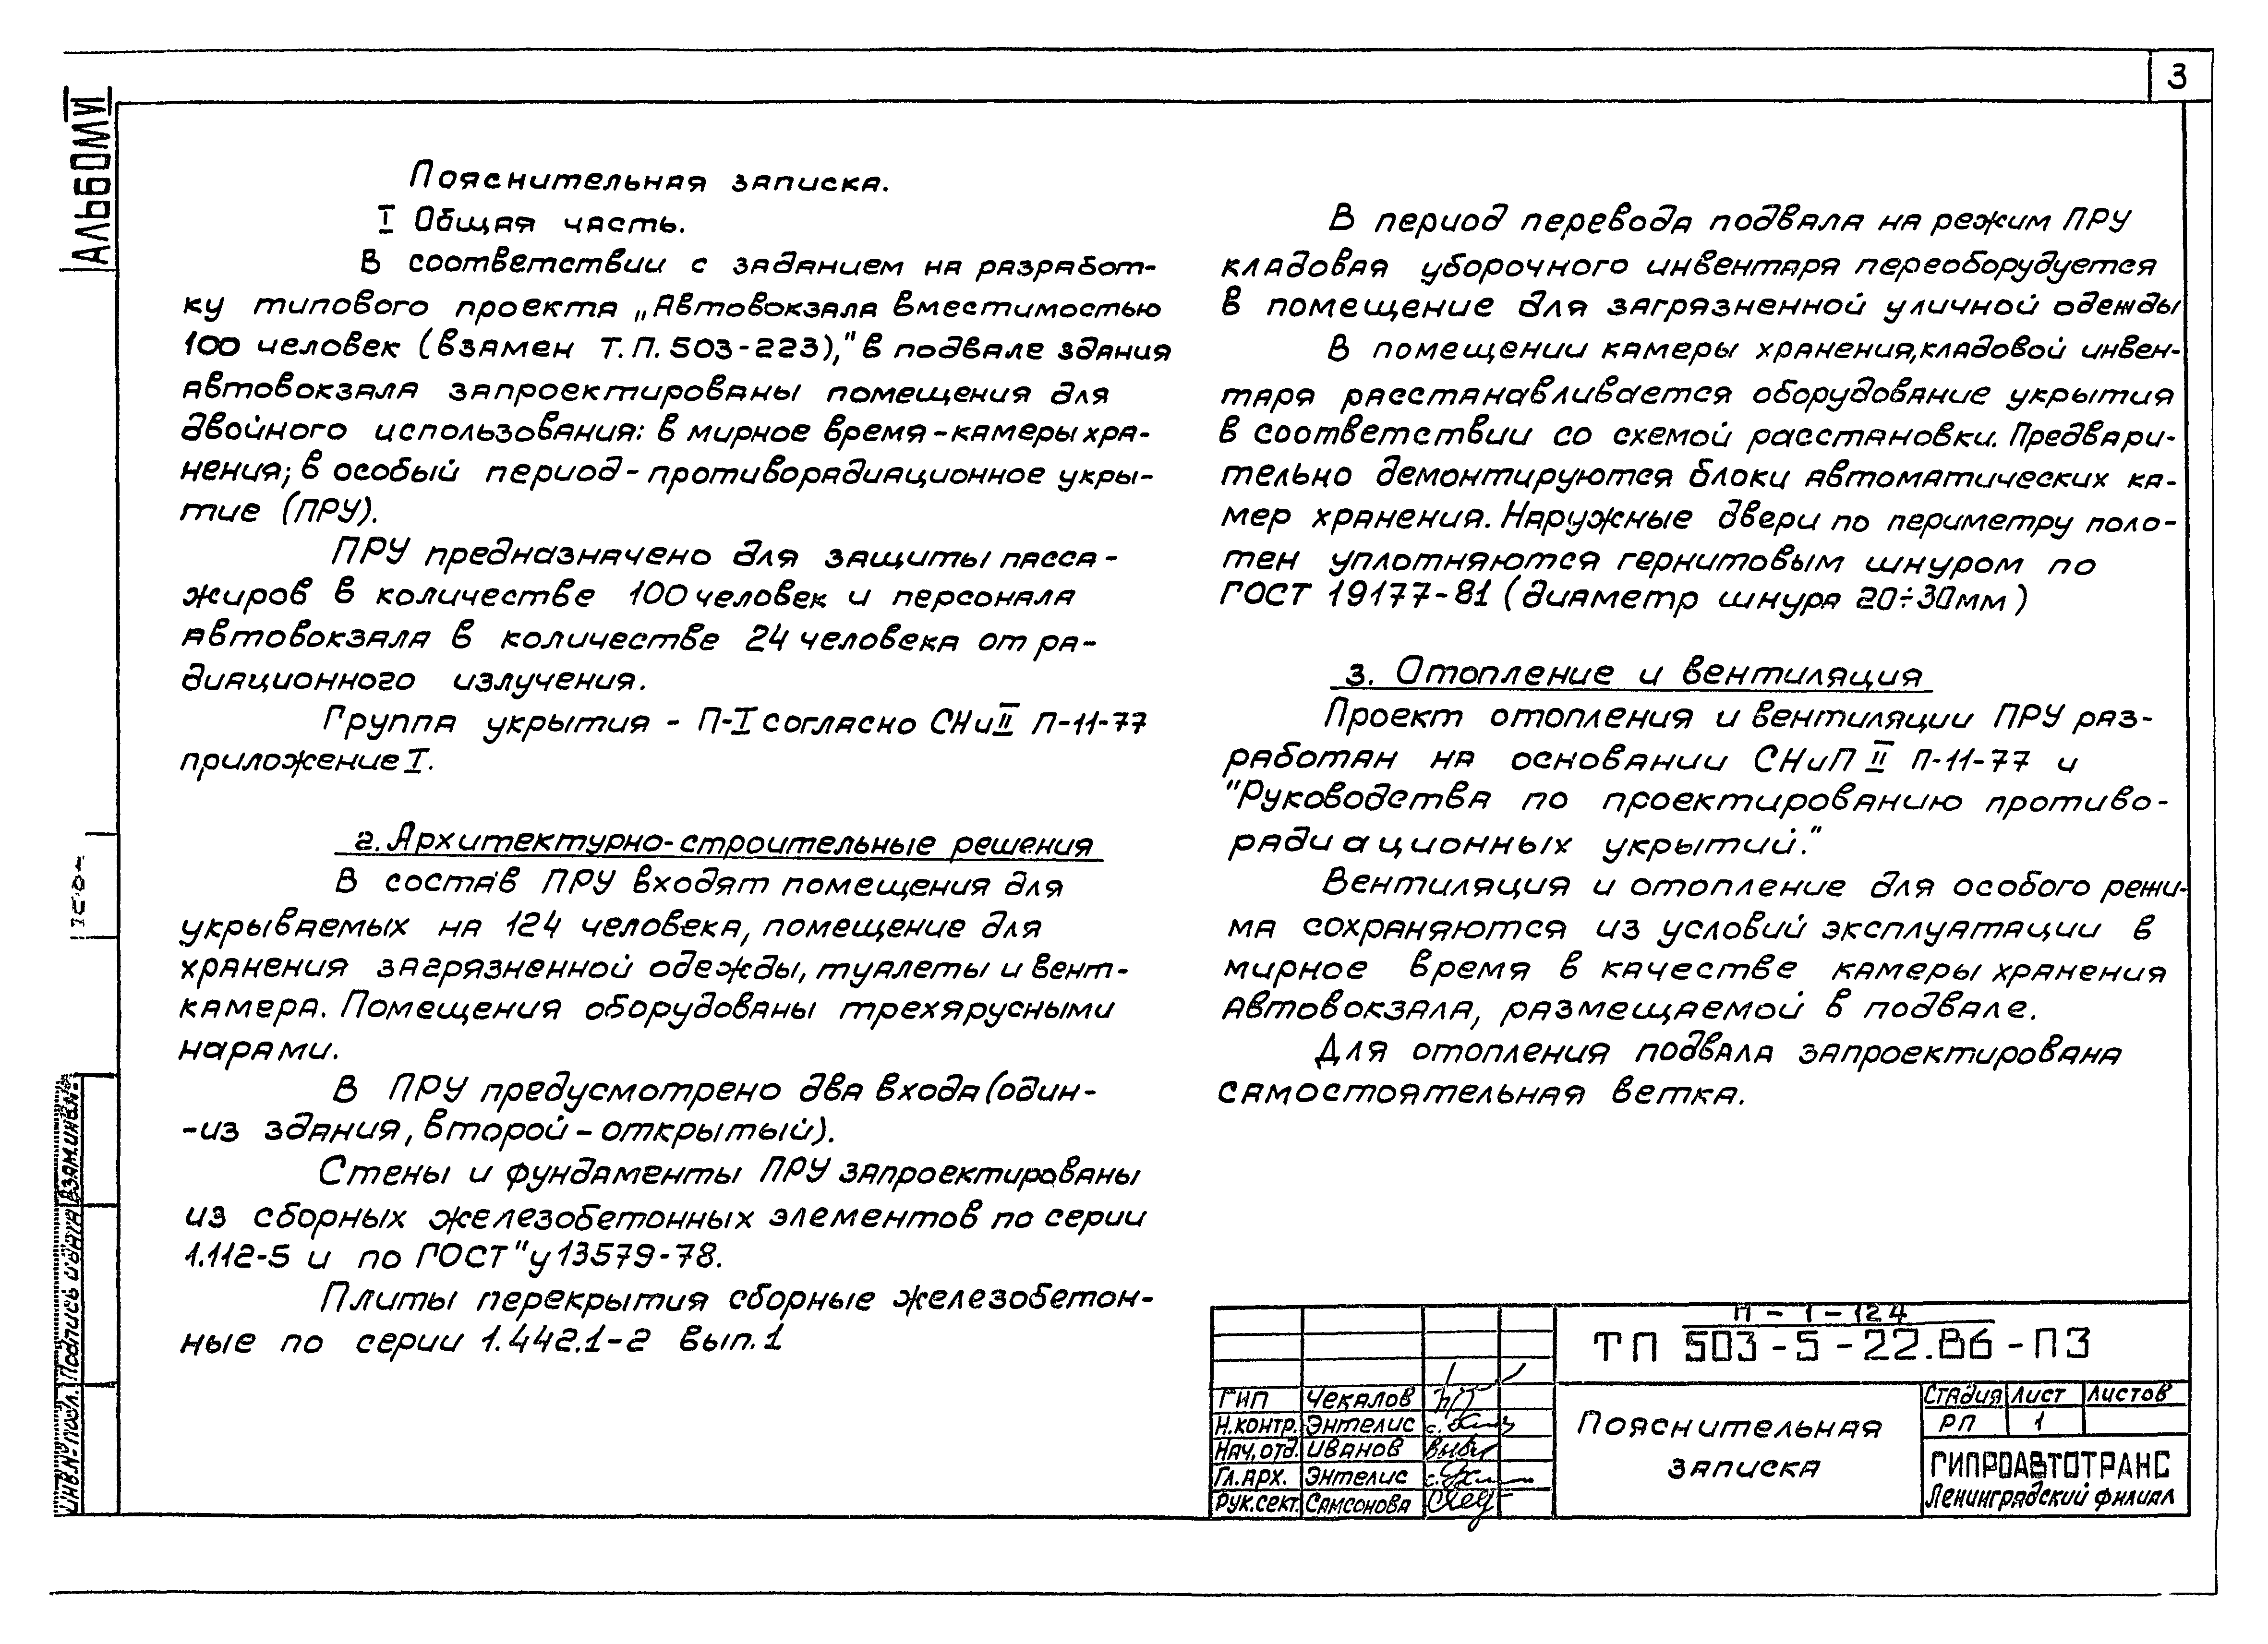 3
Альбом VI
Пояснительная записка.
I Общая часть.
В соответствии с заданием на разработ-
ку типового проекта „Автовокзала вместимостью
100 человек (взамен Т.П. 503-223),” в подвале здания
автовокзала запроектированы помещения для
двойного использования: в мирное время-камеры хра-
нения; в особый период-противорадиационное укры-
тие (ПРУ).
ПРУ предназначено для защиты пасса-
жиров в количестве 100 человек и персонала
автовокзала в количестве 24 человека от ра-
диационного излучения.
Группа укрытия - П-I согласно СНиII П-11-77
приложение I.
2. Архитектурно-строительные решения
В состав ПРУ входят помещения для
укрываемых на 124 человека, помещение для
хранения загрязненной одежды, туалеты и вент-
камера. Помещения оборудованы трехярусными
нарами.
В ПРУ предусмотрено два входа (один-
-из здания, второй-открытый).
Стены и фундаменты ПРУ запроектированы
из сборных железобетонных элементов по серии
1.112-5 и по ГОСТ"у 13579-78.
Плиты перекрытия сборные железобетон-
ные по серии 1.442.1-2 вып.1
В период перевода подвала на режим ПРУ
кладовая уборочного инвентаря переоборудуется
в помещение для загрязненной уличной одежды
В помещении камеры хранения, кладовой инвен-
таря расстанавливается оборудование укрытия
в соответствии со схемой расстановки. Предвари-
тельно демонтируются блоки автоматических ка-
мер хранения. Наружные двери по периметру поло-
тен уплотняются гернитовым шнуром по
ГОСТ 19177-81 (диаметр шнура 20÷30мм)
3. Отопление и вентиляция
Проект отопления и вентиляции ПРУ раз-
работан на основании СНиП II П-11-77 и
"Руководства по проектированию противо-
радиационных укрытий."
Вентиляция и отопление для особого режи-
ма сохраняются из условий эксплуатации в
мирное время в качестве камеры хранения
автовокзала, размещаемой в подвале.
Для отопления подвала запроектирована
самостоятельная ветка.
Инв.№ подл. Подпись и дата Взам.инв.№
П-1-124
ТП 503-5-22.86-ПЗ
ГИП Чекалов
Н.контр. Энтелис
Нач.отд. Иванов
Гл.арх. Энтелис
Рук.сект. Самсонова
Пояснительная
записка
Стадия Лист Листов
РП 1
ГИПРОАВТОТРАНС
Ленинградский филиал